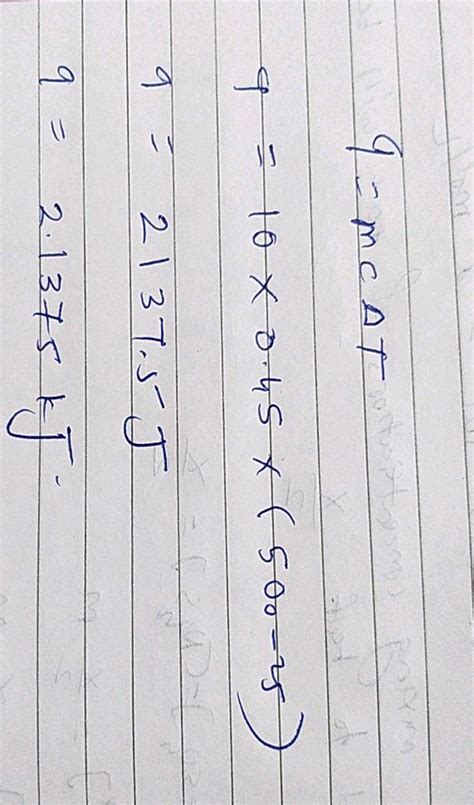 q = mcΔT
q = 10 × 0.45 × (500-25)
q = 2137.5 J
q = 2.1375 kJ.